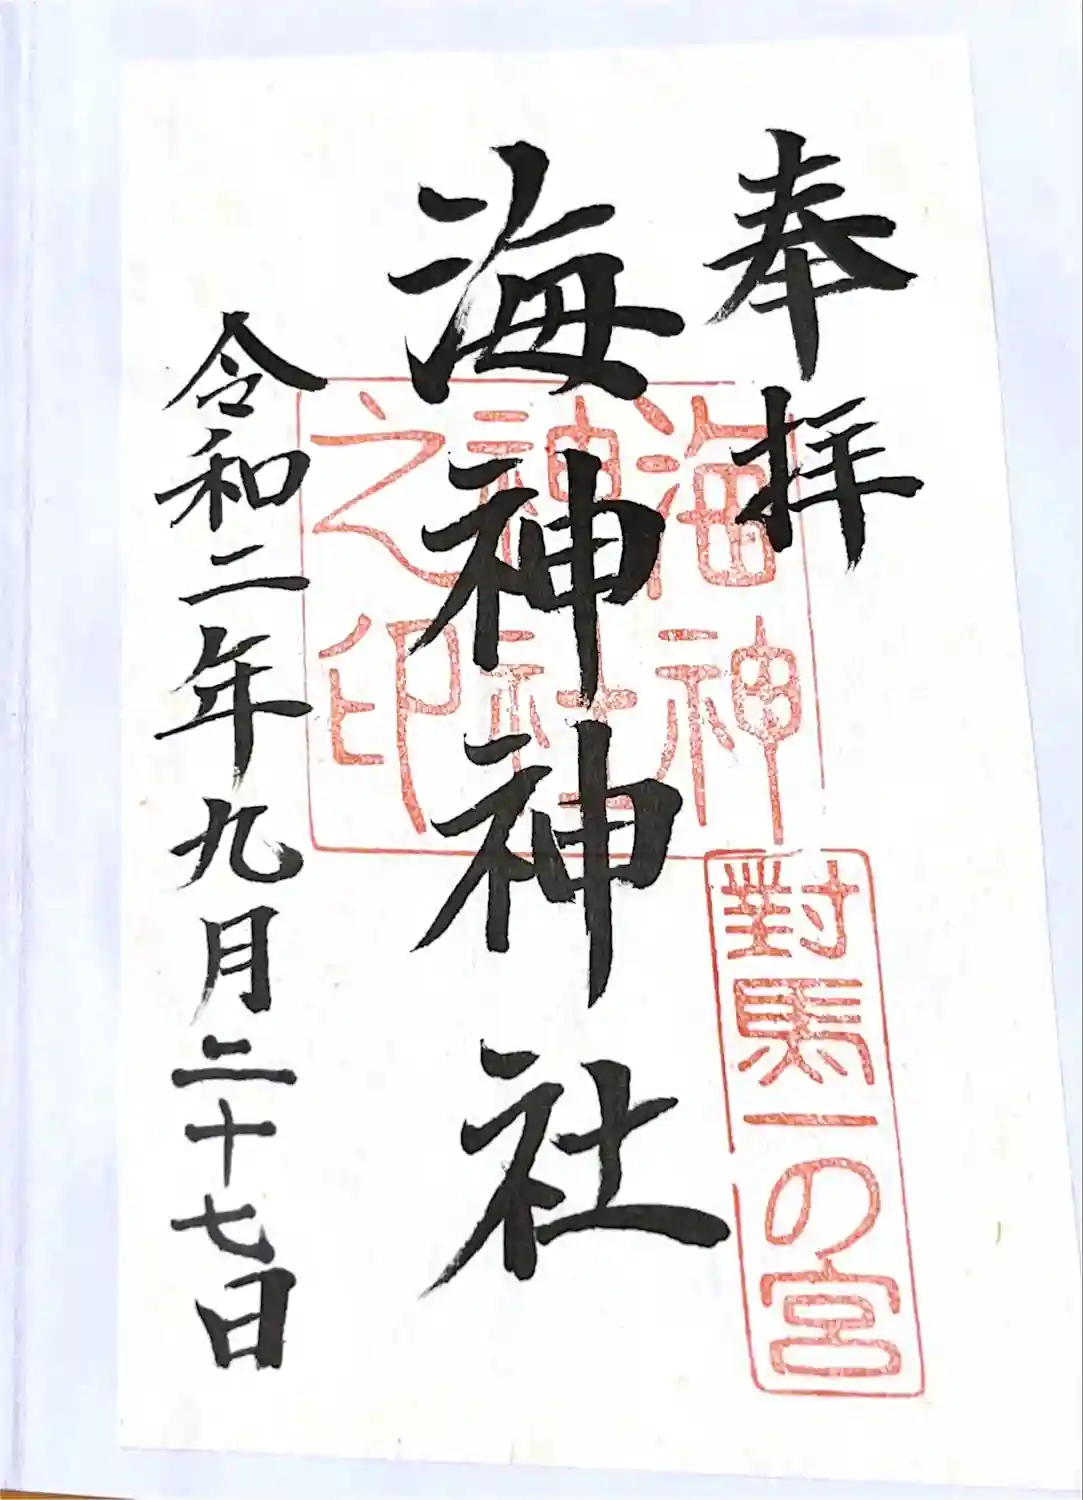 奉拝
海神神社
令和二年九月二十七日
海神
神社
之印
對馬一の宮